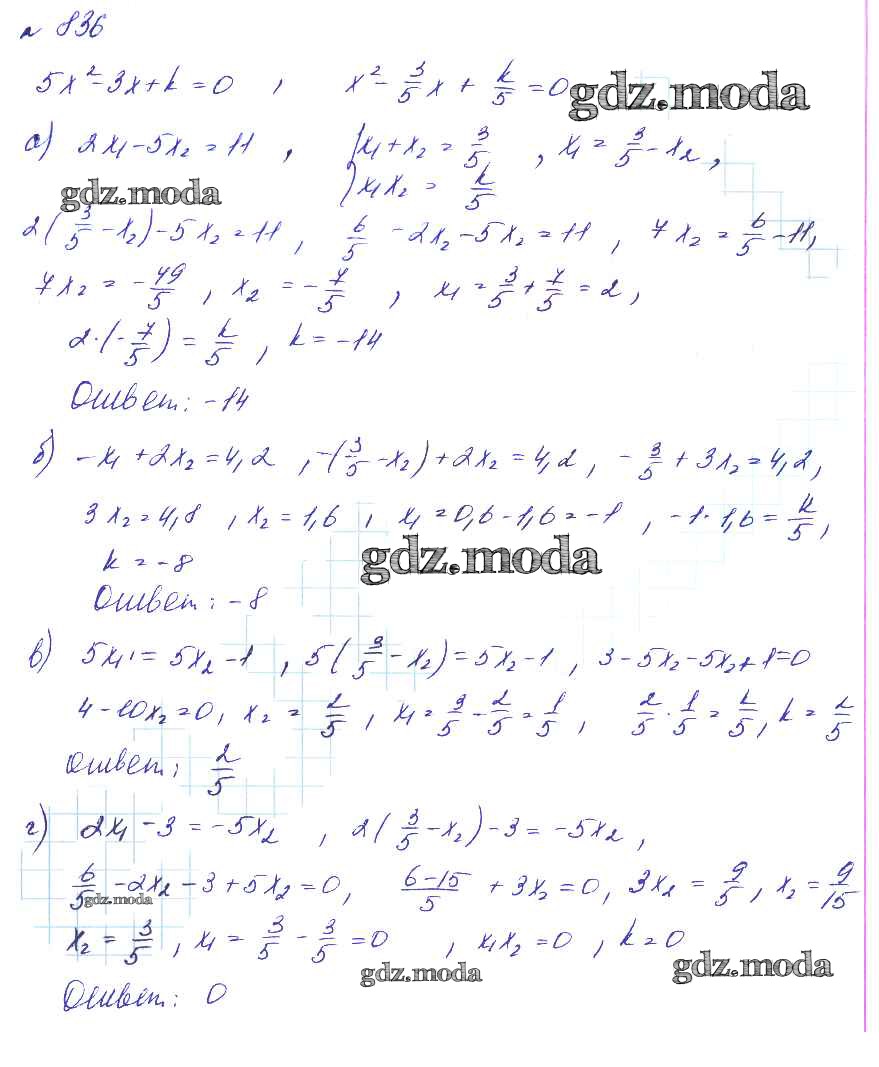 № 836
5x² - 3x + k = 0 , x² - 3/5 x + k/5 = 0
gdz.moda
а) 2x₁ - 5x₂ = 11 , { x₁ + x₂ = 3/5 , x₁ = 3/5 - x₂ ,
x₁x₂ = k/5
gdz.moda
2(3/5 - x₂) - 5x₂ = 11 , 6/5 - 2x₂ - 5x₂ = 11 , 7x₂ = 6/5 - 11,
7x₂ = -49/5 , x₂ = -7/5 , x₁ = 3/5 + 7/5 = 2 ,
2·(-7/5) = k/5 , k = -14
Ответ: -14
б) -x₁ + 2x₂ = 4,2 , -(3/5 - x₂) + 2x₂ = 4,2 , -3/5 + 3x₂ = 4,2 ,
3x₂ = 4,8 , x₂ = 1,6 , x₁ = 0,6 - 1,6 = -1 , -1·1,6 = k/5 ,
k = -8
gdz.moda
Ответ: -8
в) 5x₁ = 5x₂ - 1 , 5(3/5 - x₂) = 5x₂ - 1 , 3 - 5x₂ - 5x₂ + 1 = 0
4 - 10x₂ = 0, x₂ = 2/5 , x₁ = 3/5 - 2/5 = 1/5 , 2/5 · 1/5 = k/5 , k = 2/5
Ответ: 2/5
г) 2x₁ - 3 = -5x₂ , 2(3/5 - x₂) - 3 = -5x₂ ,
6/5 - 2x₂ - 3 + 5x₂ = 0, (6-15)/5 + 3x₂ = 0, 3x₂ = 9/5 , x₂ = 9/15
gdz.moda
x₂ = 3/5 , x₁ = 3/5 - 3/5 = 0 , x₁x₂ = 0 , k = 0
gdz.moda
gdz.moda
Ответ: 0